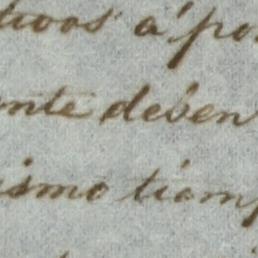 tivos á po
ente deben
ismo tiemp